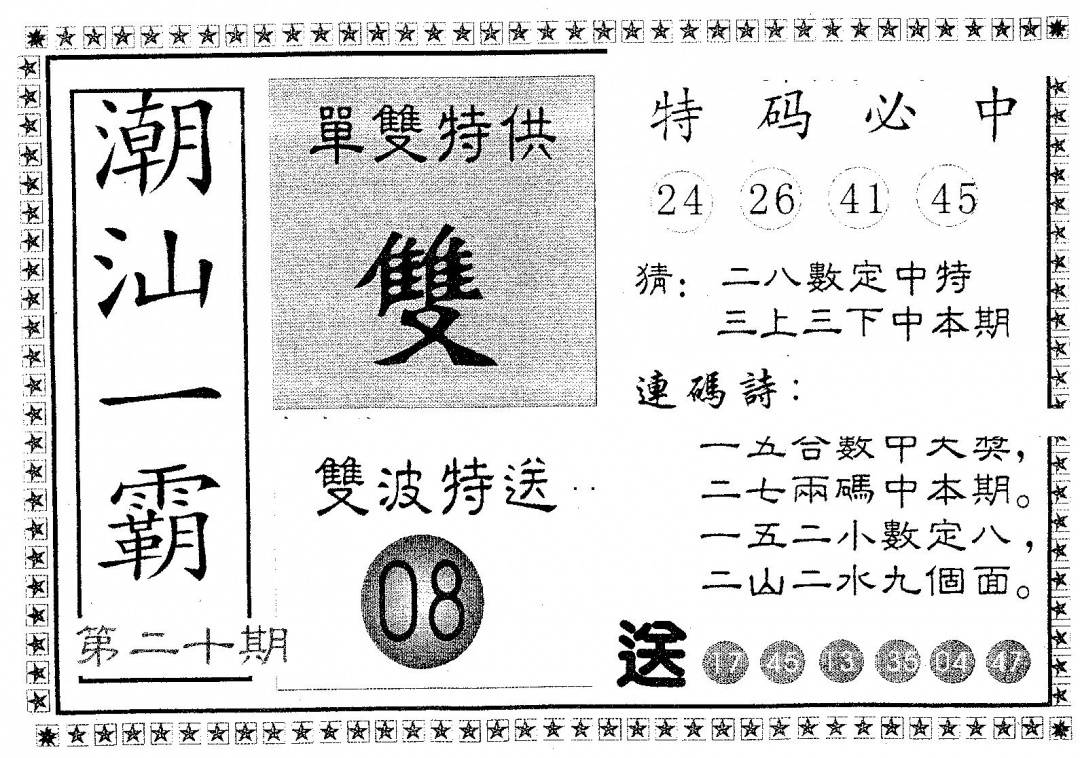 潮汕一霸
第二十期
單雙特供
雙
雙波特送
08
特码必中
24 26 41 45
猜：二八數定中特
三上三下中本期
連碼詩：
一五合數中大獎，
二七兩碼中本期。
一五二小數定八，
二山二水九個面。
送 17 45 13 35 04 47